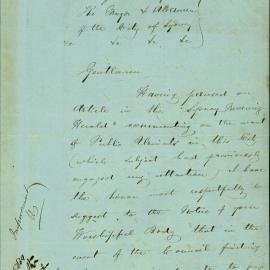 The Mayor & Aldermen
of the City of Sydney
&c &c &c
Gentlemen
Having perused an
Article in the Sydney Morning
Herald commenting on the want
of Public Urinals in this City
(which subject had previously
engaged my attention) I have
the honor most respectfully to
suggest to the Notice of your
Worshipful Body that in the
event of the Council